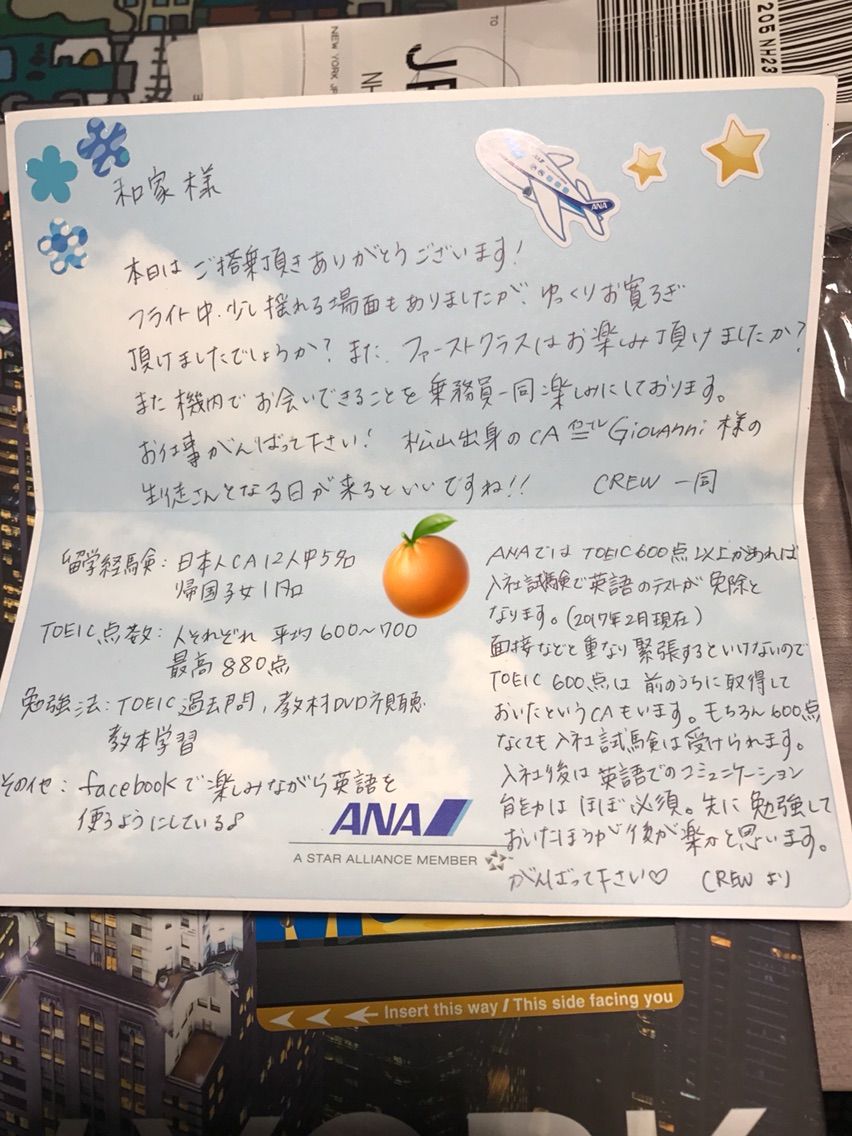 TO
NEW YORK JF
JF
NH
205 NH23
和家様
ANA
本日は ご搭乗頂きありがとうございます!
フライト中、少し揺れる場面もありましたが、ゆっくりお寛ろぎ
頂けましたでしょうか? また、ファーストクラスはお楽しみ頂けましたか?
また機内でお会いできることを乗務員一同楽しみにしております。
お仕事がんばって下さい! 松山出身のCA Giovanni様の
生徒さんとなる日が来るといいですね!! CREW 一同
留学経験:日本人CA12人中5名
帰国子女1名
TOEIC点数:人それぞれ 平均600~700
最高880点
勉強法:TOEIC過去問、教材DVD視聴
教本学習
その他:facebookで楽しみながら英語を
使うようにしている
ANA
A STAR ALLIANCE MEMBER
ANAではTOEIC600点以上があれば
入社試験で英語のテストが免除と
なります。(2017年2月現在)
面接などと重なり緊張するといけないので
TOEIC 600点は前のうちに取得して
おいたというCAもいます。もちろん600点
なくても入社試験は受けられます。
入社後は英語でのコミュニケーション
能力はほぼ必須。先に勉強して
おいたほうが後が楽かと思います。
がんばって下さい♡ CREWより
Insert this way / This side facing you
YORK